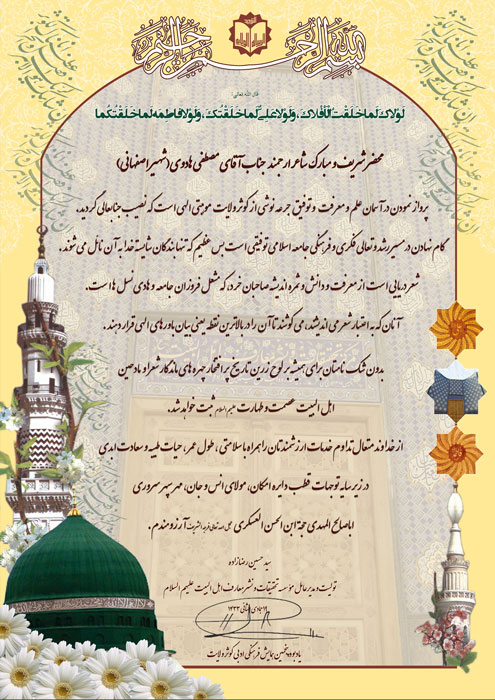 بسم الله الرحمن الرحیم
قال الله تعالی:
لَولاکَ لَما خَلَقتُ الاَفلاکَ، وَلَولا عَلیٌ لَما خَلَقتُکَ، وَلَولا فاطِمَه لَما خَلَقتُکُما
محضر شریف و مبارک شاعر ارجمند جناب آقای مصطفی هادوی (شهیر اصفهانی)
پرواز نمودن در آسمان علم و معرفت و توفیق جرعه نوشی از کوثر ولایت موهبتی الهی است که نصیب جنابعالی گردید.
گام نهادن در مسیر رشد و تعالی فکری و فرهنگی جامعه اسلامی توفیقی است بس عظیم که تنها بندگان شایسته خدا به آن نائل می شوند.
شعر دریایی است از معرفت و دانش و ثمره اندیشه صاحبان خرد، که مشعل فروزان جامعه و هادی نسل ها است.
آنان که به اعتبار شعر می اندیشند، می کوشند تا آن را در بالاترین نقطه یعنی بیان باورهای الهی قرار دهند.
بدون شک نامتان برای همیشه بر لوح زرین تاریخ پر افتخار چهره های ماندگار شعرا و مادحین
اهل البیت عصمت و طهارت علیهم السلام ثبت خواهد شد.
از خداوند متعال تداوم خدمات ارزشمندتان را همراه با سلامتی، طول عمر، حیات طیبه و سعادت ابدی
در زیر سایه توجهات قطب دایره امکان، مولای انس و جان، مهر سپهر سروری
اباصالح المهدی حجة ابن الحسن العسکری عجل الله تعالی فرجه الشریف آرزومندم.
سید حسین رضازاده
تولیت و مدیر عامل مؤسسه تحقیقات و نشر معارف اهل البیت علیهم السلام
جمادی الثانی ۱۴۳۳
یادبود پنجمین همایش فرهنگی ادبی کوثر ولایت